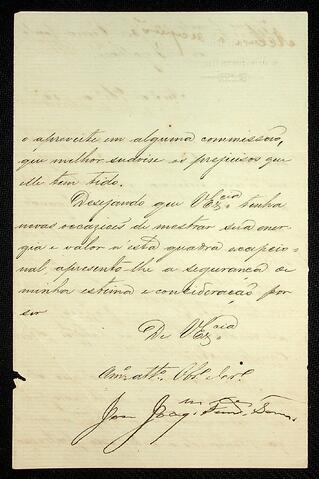 o aproveite em alguma commissão,
que melhor suavise os prejuisos que
elle tem tido.
Desejando que V.Ex.cia tenha
novas occasiões de mostrar sua ener-
gia e valor n'esta quadra excepcio-
nal, apresento-lhe a segurança de
minha estima e consideração por
ser
De V.Ex.cia
Am.º att.º Obr.º
José Joaq.m